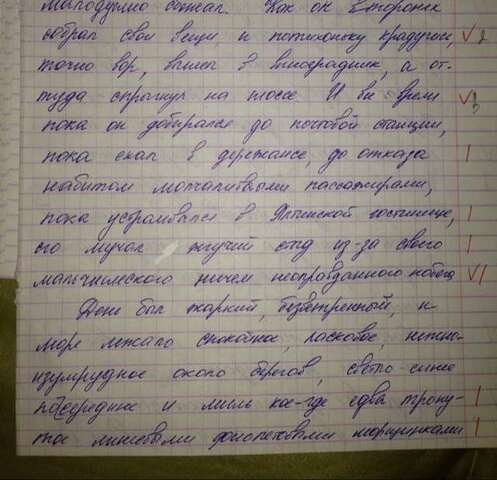 малодушно сбежал. Как он впопыхах
собрал свои вещи и потихоньку крадучись,
точно вор, вылез в виноградник, а от-
туда спрыгнул на шоссе. И вы время
пока он добирался до почтовой станции,
пока ехал в держансе, до отказа
набитом молчаливыми пассажирами,
пока устраивался в Ялтинской гостинице,
его мучал жгучий стыд из-за своего
мальчишеского ничем неоправданного побега
День был жаркий, безветренный, и
море лежало спокойное, ласковое, нежно-
изумрудное около берегов, светло-синее
посередине и лишь кое-где едва трону-
тое ленивыми фиолетовыми морщинками